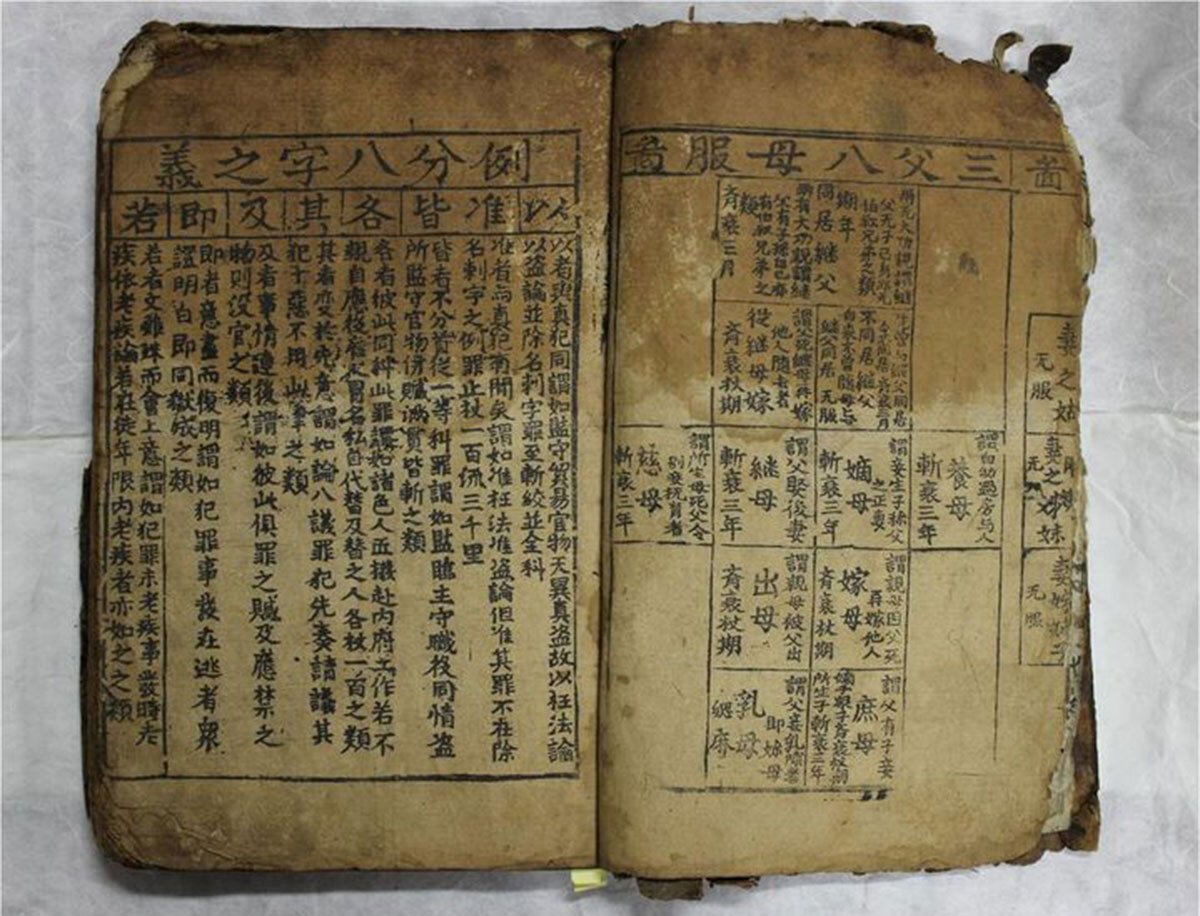 啚
妻之姑
无服
妻之姊妹
无服
无服
三父八母服啚
兩无大功親謂継
父无子己身亦无
伯叔兄弟之類
期年
同居継父
兩有大功親謂継
父有子孫自己亦
有伯叔兄弟之
類
斉衰三月
先曾与継父同居
今不同居斉衰三月
不同居継父
自来不曾隨母与
継父同居 无服
謂父死継母再嫁
他人隨去者
從継母嫁
斉衰杖期
謂自幼過房与人
養母
斬衰三年
謂妾生子称父
之正妻
嫡母
斬衰三年
謂父娶後妻
継母
斬衰三年
謂所生母死父令
別妾撫育者
慈母
斬衰三年
謂親母因父死
再嫁他人
嫁母
斉衰杖期
謂親母被父出
出母
斉衰杖期
謂父有子妾
庶母
嫡子衆子斉衰杖期
所生子斬衰三年
謂父妾乳哺者
即妳母
乳母
緦麻
例分八字之義
以 准 皆 各 其 及 即 若
以者與真犯同謂如監守貿易官物无異真盗故以枉法論
以盗論並除名刺字罪至斬絞並全科
准者與真犯有間矣謂如准枉法准盗論但准其罪不在除
名刺字之例罪止杖一百流三千里
皆者不分首從一等科罪謂如監臨主守職役同情盗
所監守官物併贓滿貫皆斬之類
各者彼此同科此罪謂如諸色人五撥赴内府工作若不
親自應役雇人冒名私自代替及替之人各杖一百之類
其者变於先意謂如論八議罪犯先奏請議其
犯十惡不用此律之類
及者事情連後謂如彼此俱罪之贓及應禁之
物則沒官之類
即者意盡而復明謂如犯罪事發在逃者衆
證明白即同獄成之類
若者文雖殊而會上意謂如犯罪未老疾事發時老
疾依老疾論若在徒年限内老疾者亦如之之類